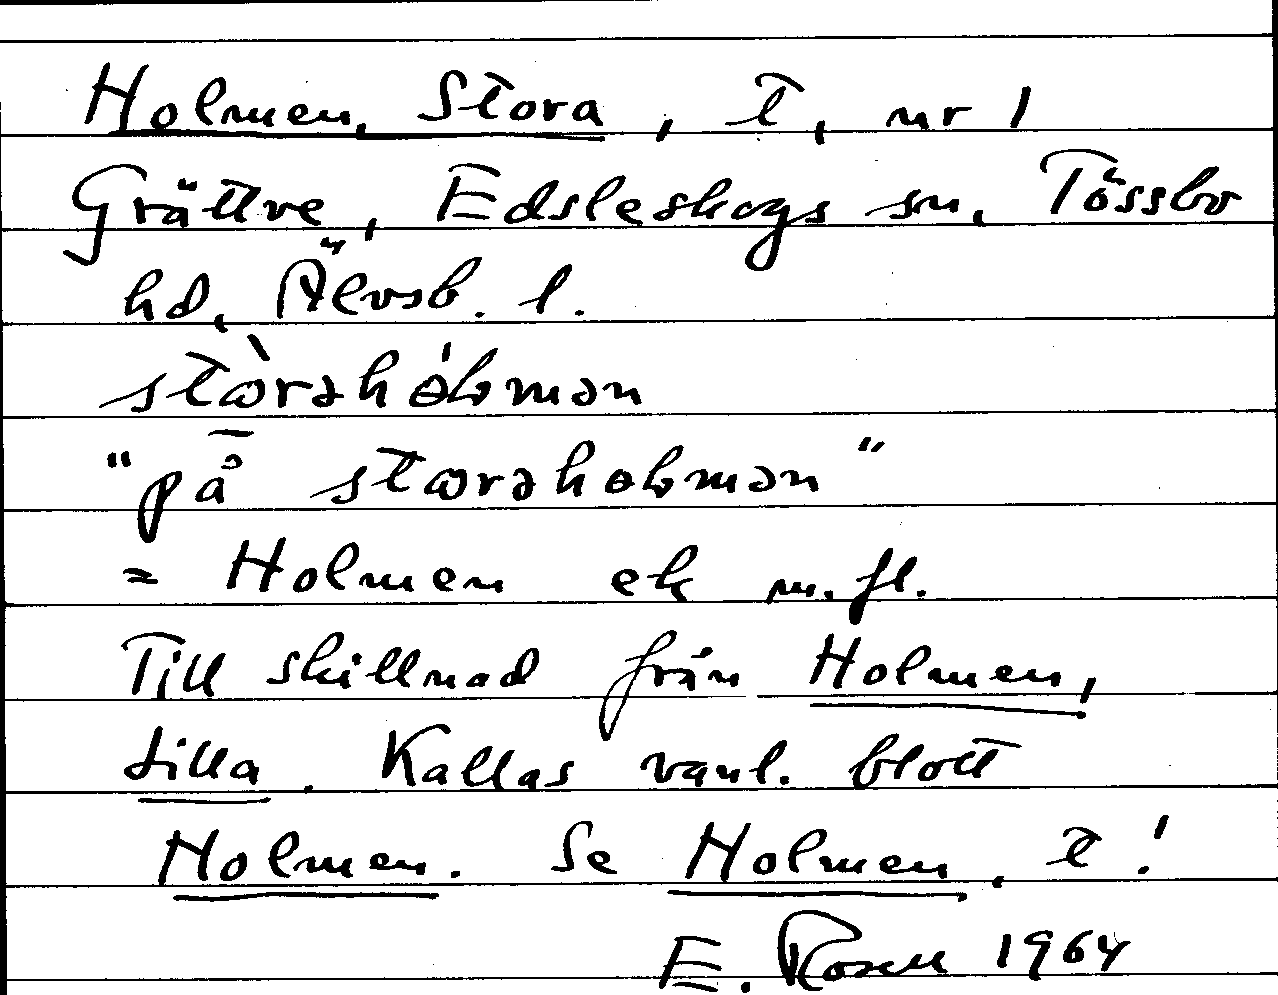 Holmen, Stora, t, nr 1
Grättve, Edsleskogs sn, Tössbo
hd, Älvsb. l.
stɷ̀rəhóɫmən
"på̄ stɷrəhoɫmən"
= Holmen ek m. fl.
Till skillnad från Holmen,
Lilla. Kallas vanl. blott
Holmen. Se Holmen, t!
E. Rosell 1964